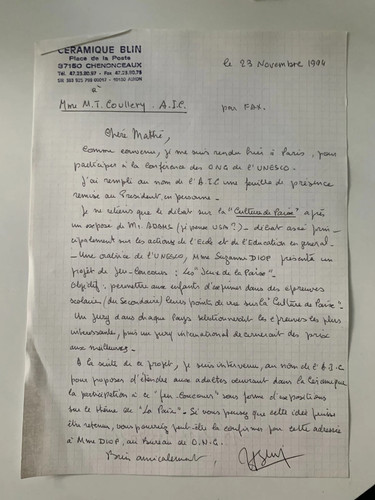 CERAMIQUE BLIN
Place de la Poste
37150 CHENONCEAUX
Tél. 47.23.90.97 - Fax 47.23.90.75
le 23 Novembre 1994
à
Mme M.T. Coullery. A.I.C.
par FAX.
Chère Mathé,
Comme convenu, je me suis rendu hier à Paris, pour
participer à la Conférence des ONG de l'UNESCO.
J'ai rempli au nom de l'A.I.C une feuille de présence
remise au Président, en personne.
Je ne retiens que le débat sur la "Culture de Paix" après
un exposé de M. ADAMS (je pense USA?) - débat axé prin-
cipalement sur les actions de l'Ecole et de l'Education en général.
- Une oratrice de l'UNESCO, Mme Suzanne DIOP présenta un
projet de Jeu-Concours : Les "Jeux de la Paix".
Objectif : permettre aux enfants d'exprimer dans des épreuves
scolaires (du Secondaire) leurs points de vue sur la "Culture de Paix".
Un jury dans chaque Pays sélectionnerait les épreuves les plus
intéressantes, puis un jury international décernerait des prix
aux meilleures.
A la suite de ce projet, je suis intervenu, au nom de l'A.I.C
pour proposer d'étendre aux adultes oeuvrant dans la Céramique
la participation à ce "Jeu-Concours" sous forme d'expositions
sur le thème de "La Paix". Si vous pensez que cette idée puisse
être retenue, vous pourriez peut-être la confirmer par lettre adressée
à Mme DIOP, au Bureau de O.N.G.
Bien amicalement,